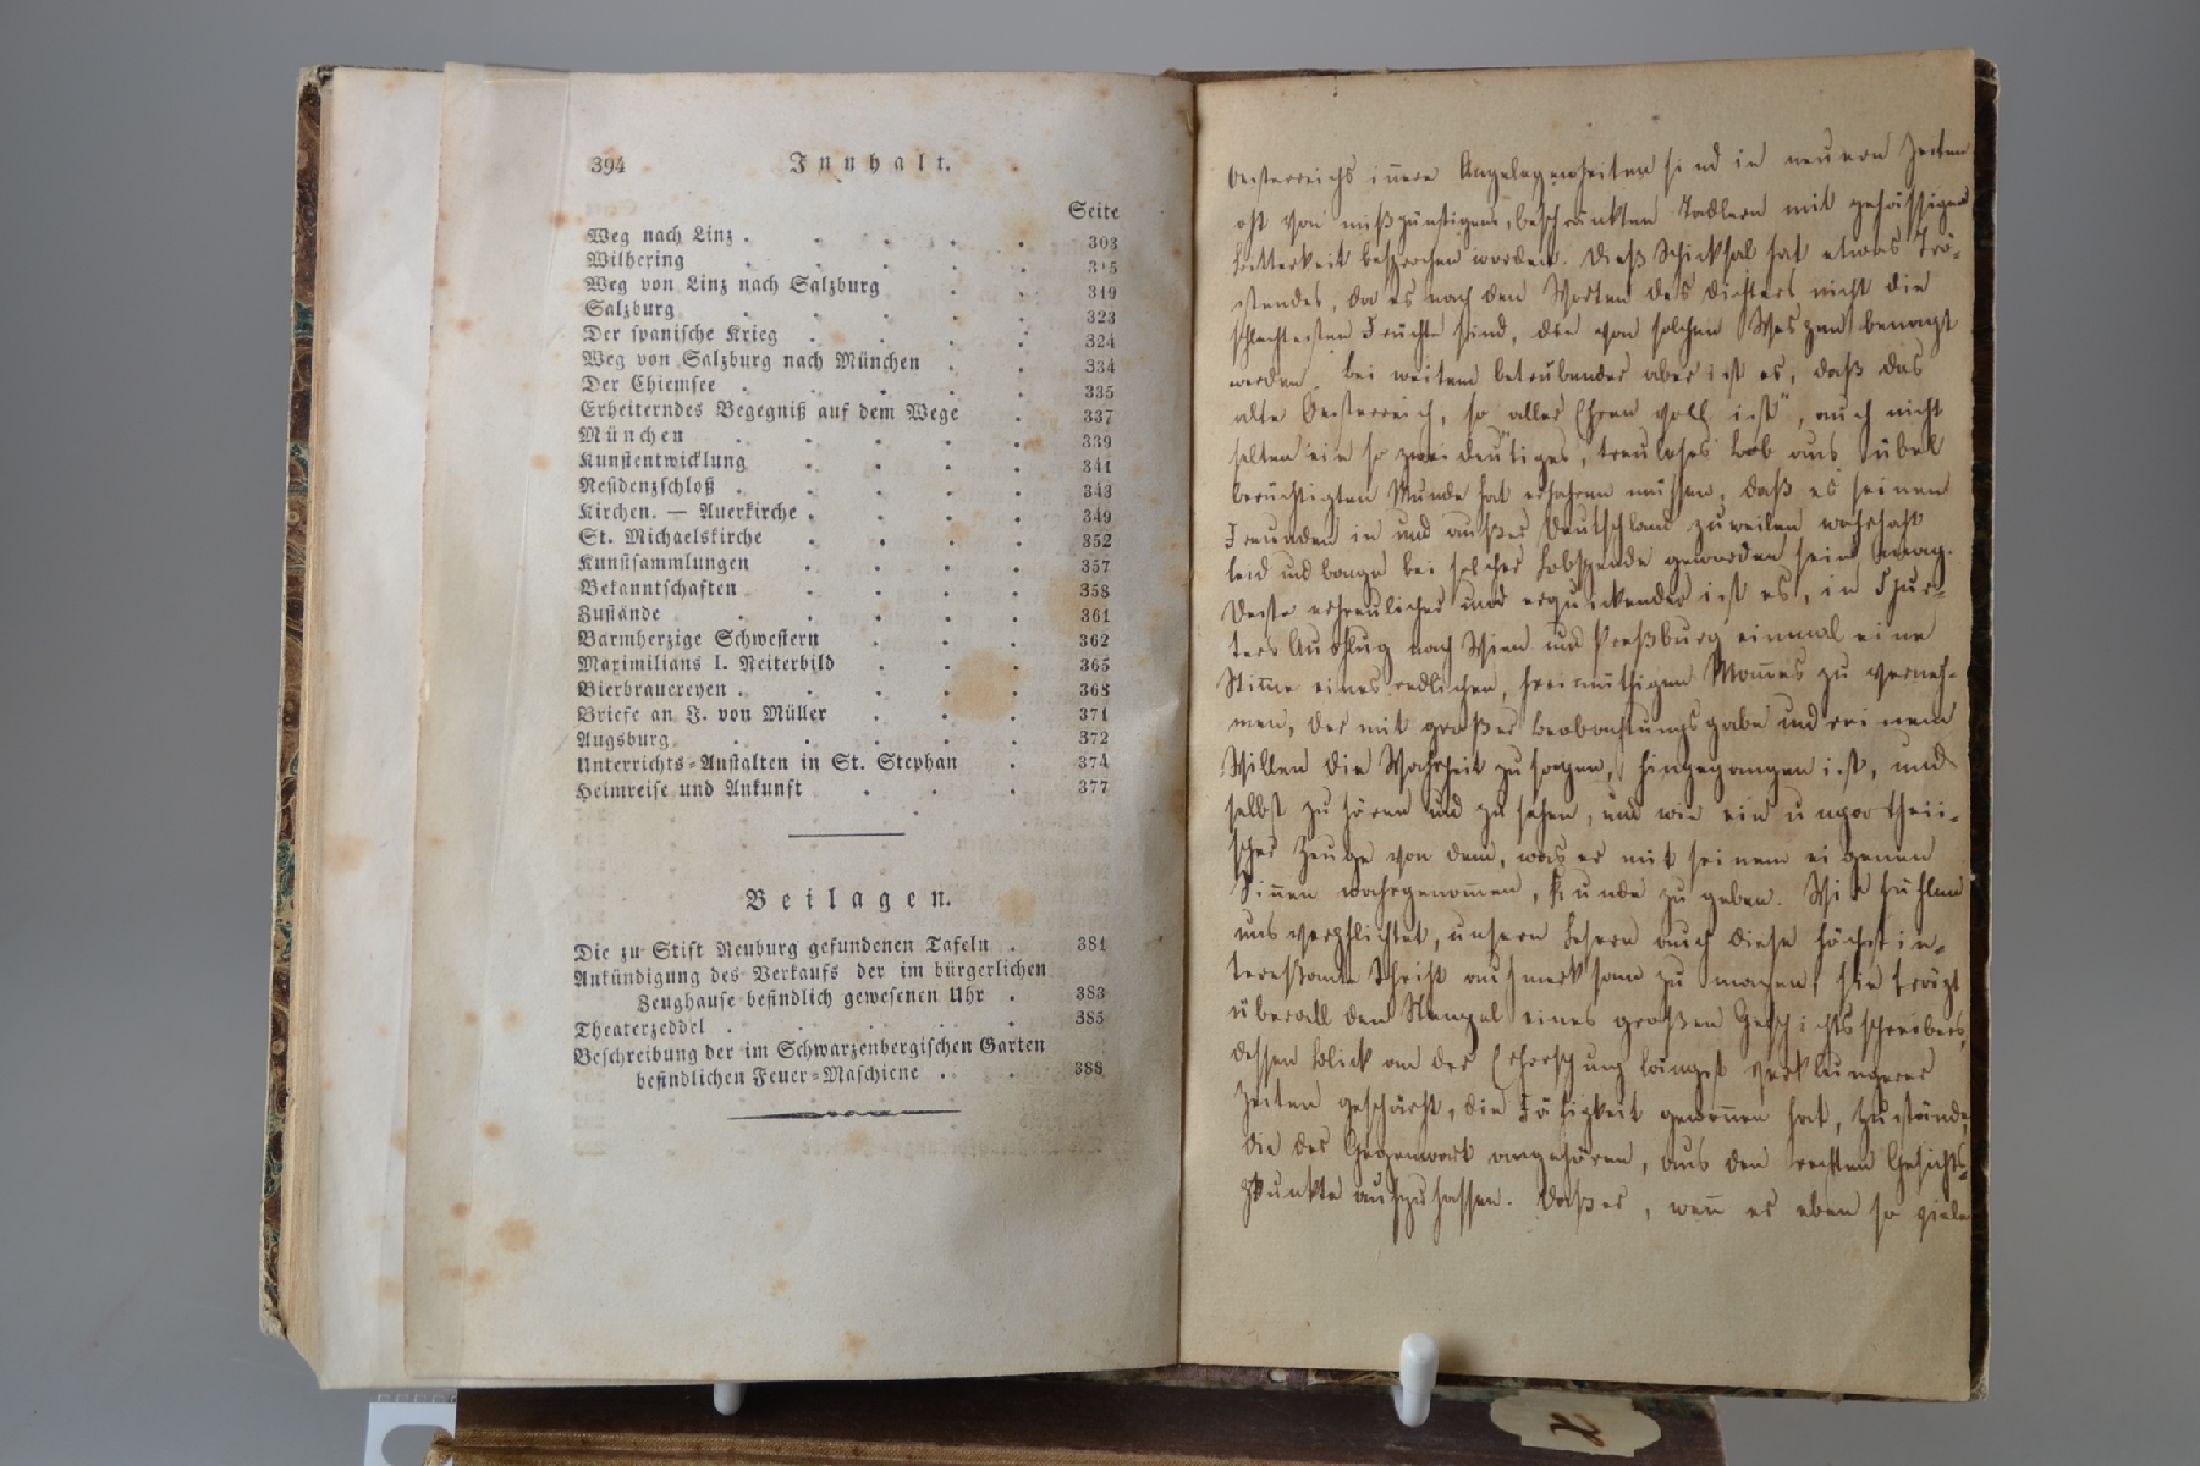 394
Innhalt.
Seite
Weg nach Linz . . . . . 303
Wilhering . . . . . 315
Weg von Linz nach Salzburg . . 319
Salzburg . . . . . 323
Der spanische Krieg . . . . 324
Weg von Salzburg nach München . . 334
Der Chiemsee . . . . . 335
Erheiterndes Begegniß auf dem Wege . 337
München . . . . . 339
Kunstentwicklung . . . . 341
Residenzschloß . . . . . 343
Kirchen. — Auerkirche . . . . 349
St. Michaelskirche . . . . 352
Kunstsammlungen . . . . 357
Bekanntschaften . . . . 358
Zustände . . . . . 361
Barmherzige Schwestern . . . 362
Maximilians I. Reiterbild . . . 365
Bierbrauereyen . . . . . 368
Briefe an J. von Müller . . . 371
Augsburg . . . . . 372
Unterrichts-Anstalten in St. Stephan . 374
Heimreise und Ankunft . . . 377
Beilagen.
Die zu Stift Neuburg gefundenen Tafeln . 381
Ankündigung des Verkaufs der im bürgerlichen
Zeughause befindlich gewesenen Uhr . 383
Theaterzeddel . . . . . 385
Beschreibung der im Schwarzenbergischen Garten
befindlichen Feuer-Maschiene . . 388
Oesterreichs iñere Angelegenheiten sind in neuern Zeiten
oft von mißgünstigen, beschränkten Tadlern mit gehässiger
Bitterkeit besprochen worden. Dieß Schicksal hat etwas Trö-
stendes, da es nach den Worten des Dichters nicht die
schlechtesten Früchte sind, die von solchen Wespen benagt
werden. Bei weitem betrübender aber ist es, daß das
alte Oesterreich, so aller Ehren voll ist", auch nicht
selten ein so zweideutiges, treuloses Lob aus übel
berüchtigten Munde hat erfahren müssen, daß es seinen
Freunden in und außer Deutschland zuweilen wahrhaft
leid und bange bei solcher Lobspende geworden sein mag.
Desto erfreulicher und erquickender ist es, in Hur-
ters Ausflug nach Wien und Preßburg einmal eine
Stim̃e eines redlichen, freimüthigen Mañes zu verneh-
men, der mit großer Beobachtungsgabe und reinem
Willen die Wahrheit zu sagen, hingegangen ist, und
selbst zu hören und zu sehen, und wie ein unparthei-
scher Zeuge von dem, was er mit seinem eigenen
Siñen wahrgenom̃en, Kunde zu geben. Wir fühlen
uns verpflichtet, unsern Lesern auch diese höchst in-
tereßante Schrift aufmerksam zu machen, sie trägt
überall den Stempel eines großen Geschichtsschreibers,
dessen Blick an der Erforschung längst verklungener
Zeiten geschärft, die Fähigkeit gewoñen hat, Zustände,
die der Gegenwart angehören, aus den rechten Gesichts-
punkte aufzufassen. Daß er, weñ er eben so viele